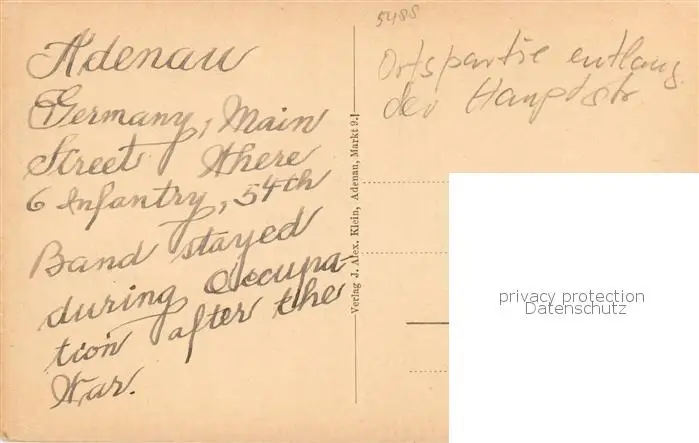 Adenau
Germany, Main
Street Where
6 Infantry, 54th
Band stayed
during Occupa-
tion after the
War.
5488
Ortspartie entlang
der Hauptstr
Verlag J. Alex. Klein, Adenau, Markt 9.
privacy protection
Datenschutz